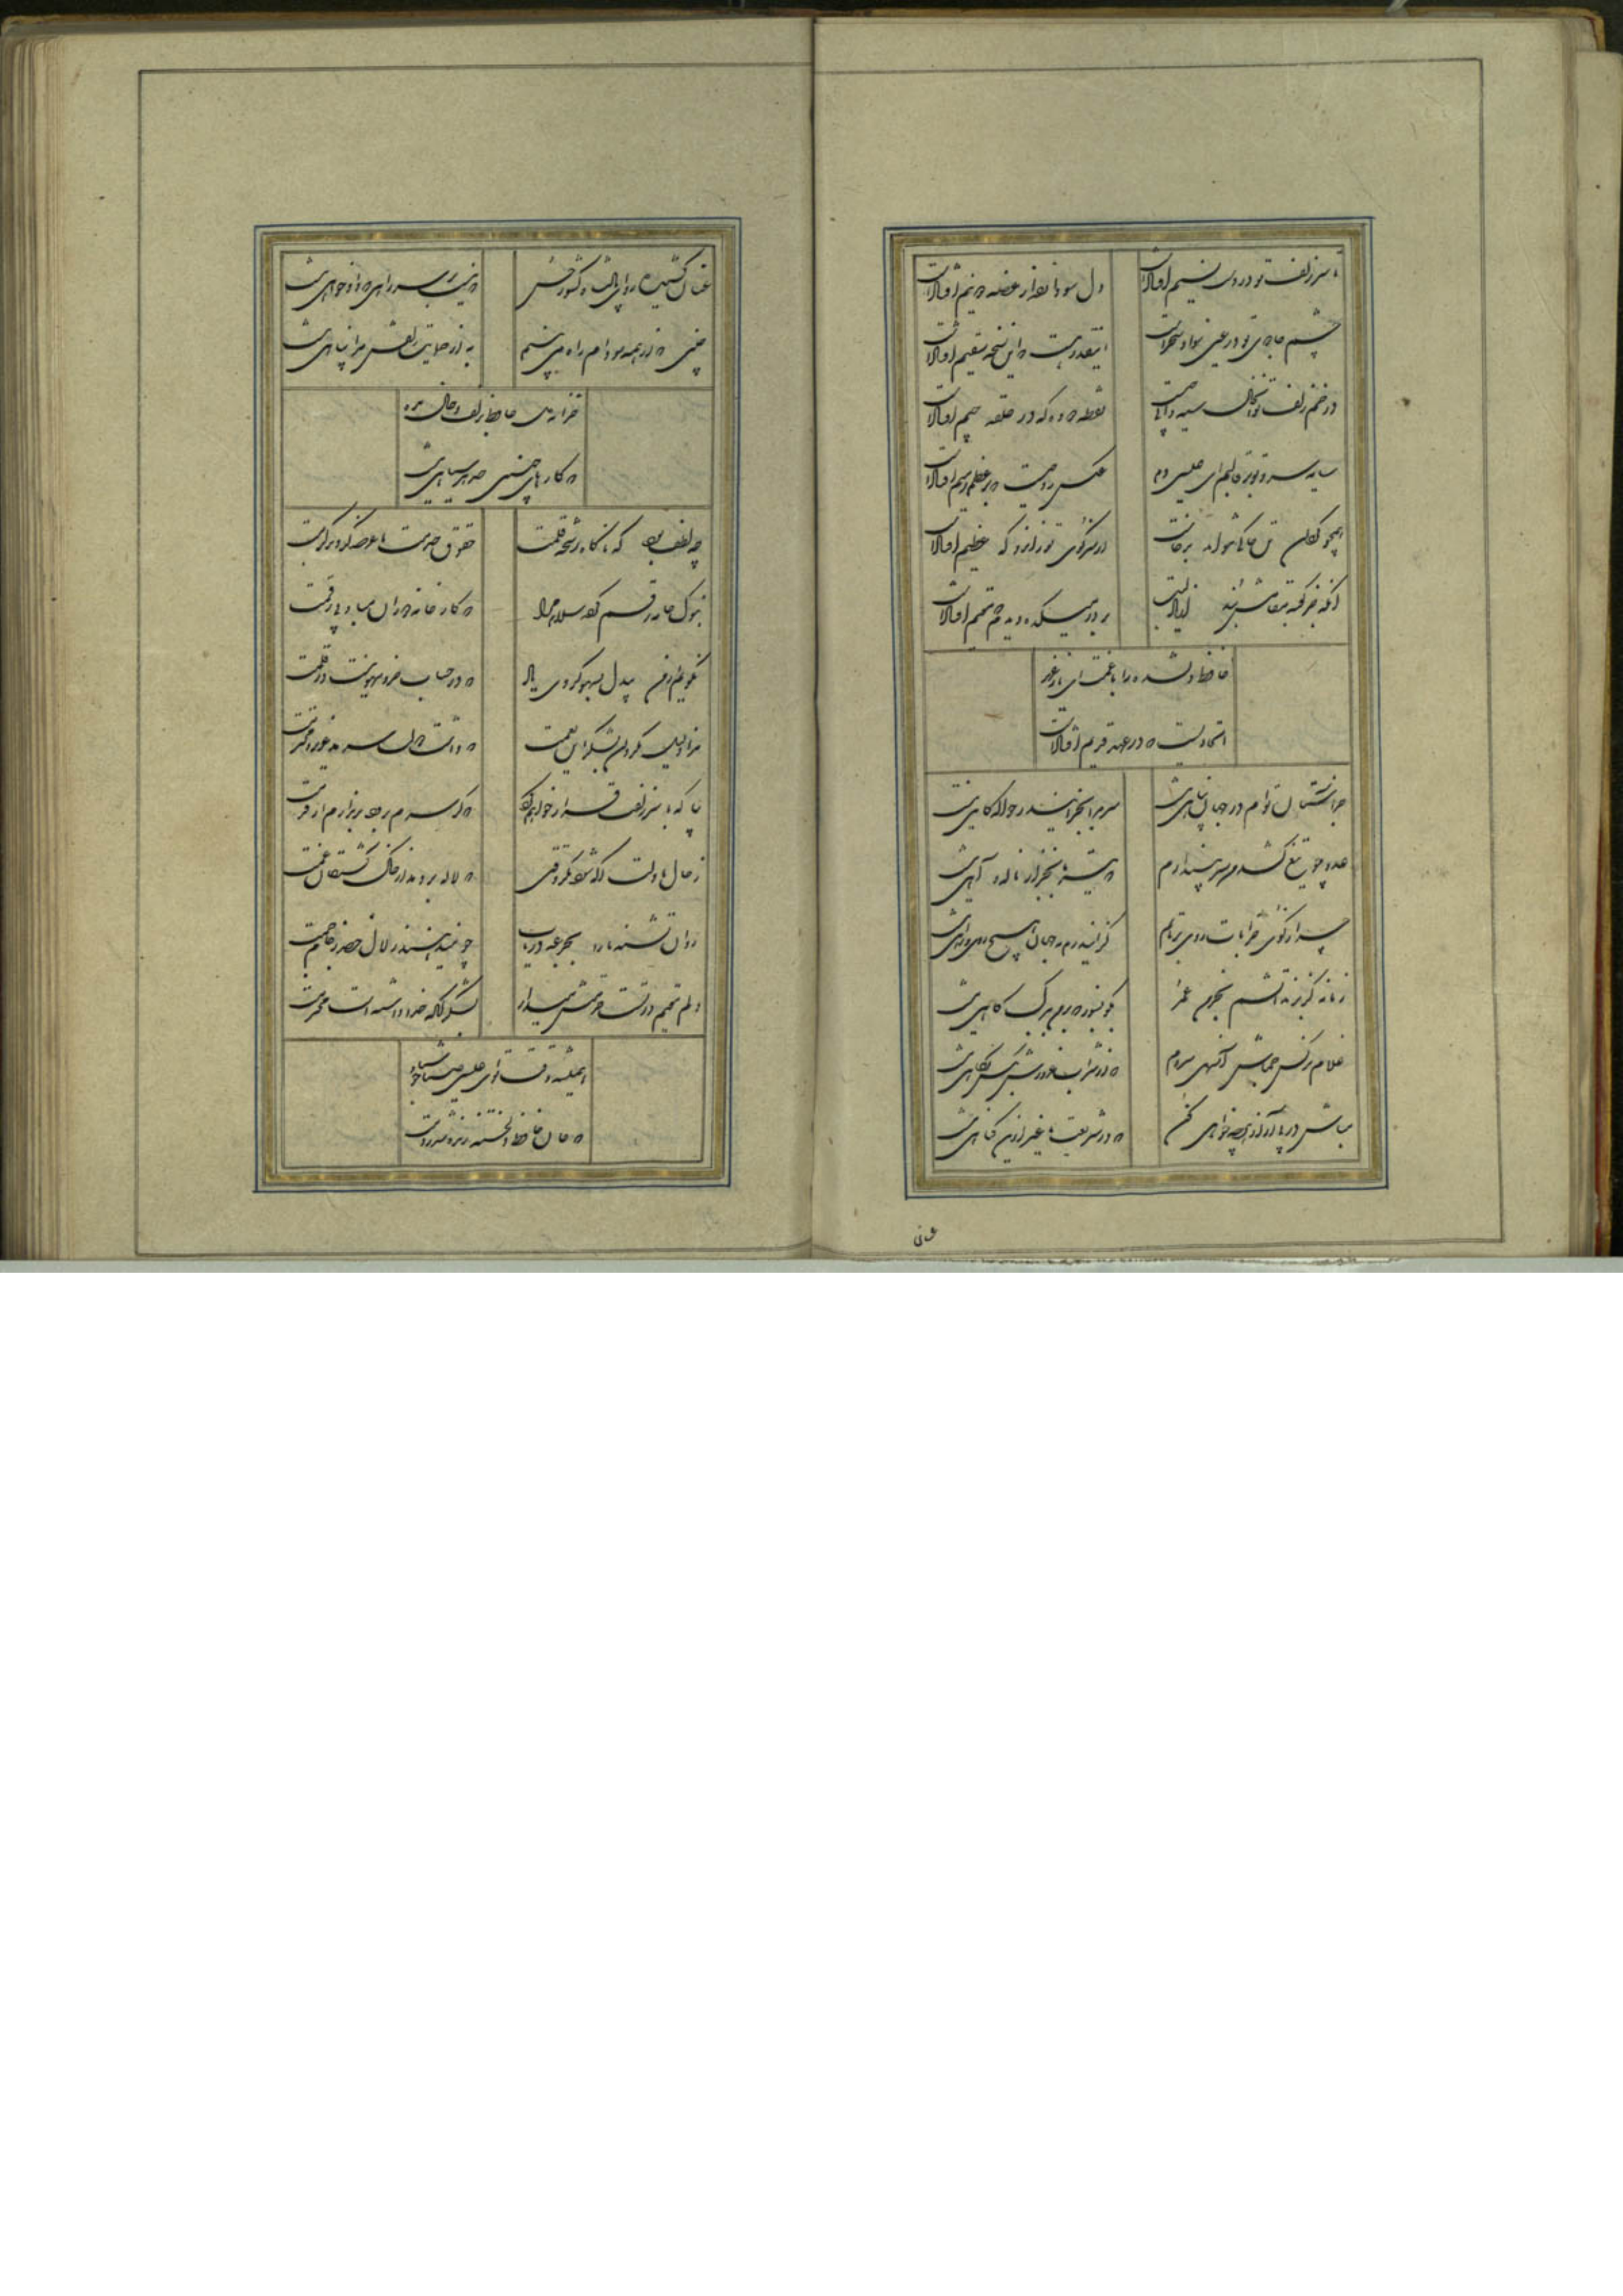 تا سر زلف تو در دست نسیم افتادست
دل سودا زده از غصه دو نیم افتادست
چشم جادوی تو در عین سواد سحرست
اینقدر هست که این نسخه سقیم افتادست
در خم زلف تو آن خال سیه دانی چیست
نقطه دوده که در حلقه جیم افتادست
سایه سرو تو بر قالبم ای عیسی دم
عکس روحیست که بر عظم رمیم افتادست
همچو گل این تن خاکی نتواند برخاست
از سر کوی تو زانرو که عظیم افتادست
آنکه جز کعبه مقامش نبد از یاد لبت
بر در میکده دیدم که مقیم افتادست
حافظ دلشده را با غمت ای یار عزیز
اتحادیست که در عهد قدیم افتادست
جز آستان توام در جهان پناهی نیست
سر مرا بجز این در حواله گاهی نیست
عدو چو تیغ کشد من سپر بیندازم
که تیر ما بجز از ناله و آهی نیست
چرا ز کوی خرابات روی برتابم
کزین بهم بجهان هیچ روی و راهی نیست
زمانه گر بزند آتشم بخرمن عمر
بگو بسوز که بر من ببرگ کاهی نیست
غلام نرگس جماش آن سهی سروم
که از شراب غرورش بکس نگاهی نیست
مباش در پی آزار و هرچه خواهی کن
که در شریعت ما غیر ازین گناهی نیست
عنان
عنان کشیده رو ای پادشاه کشور حسن
که نیست بر سر راهی که دادخواهی نیست
چنین که از همه سو دام راه می بینم
به از حمایت زلفش مرا پناهی نیست
خزانه دل حافظ بزلف و خال مده
که کارهای چنین حد هر سیاهی نیست
چه لطف بود که ناگاه رشحه قلمت
حقوق خدمت ما عرضه کرد بر کرمت
بنوک خامه رقم کرده سلام مرا
که کارخانه دوران مباد بی رقمت
نگویم از من بیدل بسهو کردی یاد
که در حساب خرد نیست سهو در قلمت
مرا ذلیل مگردان بشکر این نعمت
که داشت دولت سرمد عزیز و محترمت
بیا که با سر زلفت قرار خواهم کرد
که گر سرم برود برندارم از قدمت
ز حال ما دلت آگه شود مگر وقتی
که لاله بردمد از خاک کشتگان غمت
روان تشنه ما را بجرعه دریاب
چو میدهند زلال خضر ز جام جمت
دلم مقیم در تست حرمتش میدار
بشکر آنکه خدا داشته است محترمت
همیشه وقت تو ای عیسی صبا خوش باد
که جان حافظ دلخسته زنده شد بدمت